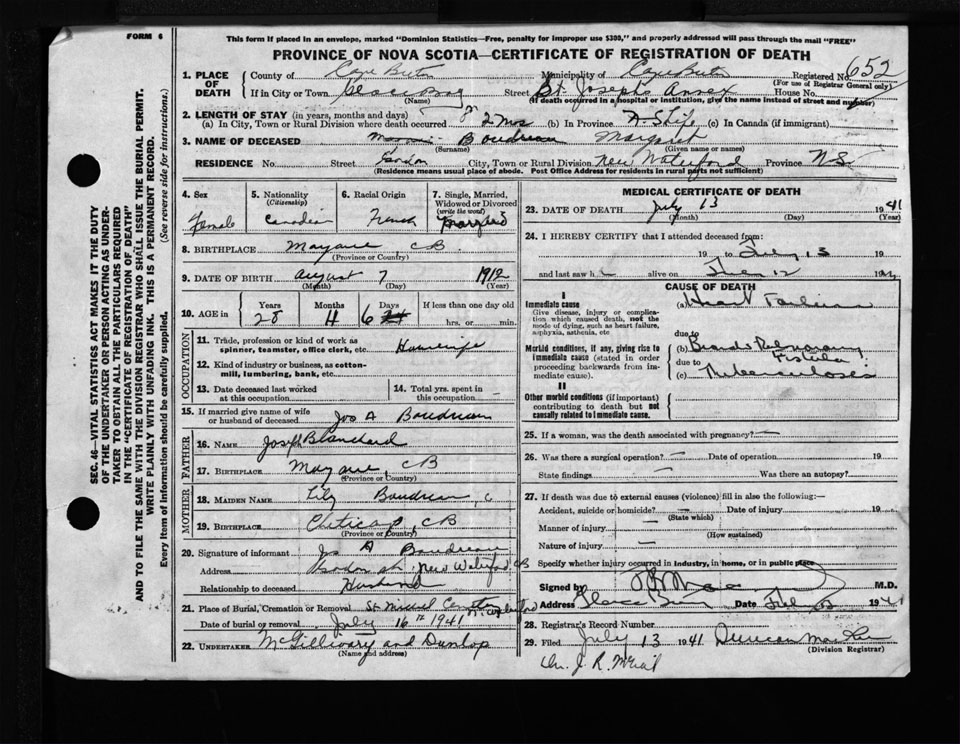 FORM 6
This form if placed in an envelope, marked "Dominion Statistics—Free, penalty for improper use $300," and properly addressed will pass through the mail "FREE"
PROVINCE OF NOVA SCOTIA—CERTIFICATE OF REGISTRATION OF DEATH
1. PLACE OF DEATH
County of Cape Breton Municipality of Cape Breton Registered No. 652
(For use of Registrar General only)
If in City or Town Glace Bay (Name) Street St. Josephs Annex House No.
(If death occurred in a hospital or institution, give the name instead of street and number)
2. LENGTH OF STAY (in years, months and days)
(a) In City, Town or Rural Division where death occurred 2 Mos (b) In Province (c) In Canada (if immigrant)
3. NAME OF DECEASED Boudreau (Surname) Margaret (Given name or names)
RESIDENCE No. Street City, Town or Rural Division New Waterford Province N S
(Residence means usual place of abode. Post Office Address for residents in rural parts not sufficient)
4. Sex Female
5. Nationality (Citizenship) Canadian
6. Racial Origin French
7. Single, Married, Widowed or Divorced (write the word) Married
8. BIRTHPLACE C B (Province or Country)
9. DATE OF BIRTH August (Month) 7 (Day) 1912 (Year)
10. AGE in Years 28 Months 11 Days 6 If less than one day old hrs. or min.
OCCUPATION
11. Trade, profession or kind of work as spinner, teamster, office clerk, etc. Housewife
12. Kind of industry or business, as cotton-mill, lumbering, bank, etc.
13. Date deceased last worked at this occupation
14. Total yrs. spent in this occupation
15. If married give name of wife or husband of deceased Jos A Boudreau
FATHER
16. NAME Joseph Blanchard
17. BIRTHPLACE C B (Province or Country)
MOTHER
18. MAIDEN NAME Lily Boudreau
19. BIRTHPLACE Cheticap, C B (Province or Country)
20. Signature of informant Jos A Boudreau
Address New Waterford C B
Relationship to deceased Husband
21. Place of Burial, Cremation or Removal
Date of burial or removal July 16th 1941
22. UNDERTAKER McGillivary and Dunlop
(Name and address)
MEDICAL CERTIFICATE OF DEATH
23. DATE OF DEATH July 13 (Month) (Day) 1941 (Year)
24. I HEREBY CERTIFY that I attended deceased from:
19 to July 13
and last saw h alive on July 12 19
CAUSE OF DEATH
I
Immediate cause (a) Heart Failure
Give disease, injury or complication which caused death, not the mode of dying, such as heart failure, asphyxia, asthenia, etc.
due to
Morbid conditions, if any, giving rise to immediate cause (stated in order proceeding backwards from immediate cause).
(b) Pulmonary Fistula
due to
(c) Tuberculosis
II
Other morbid conditions (if important) contributing to death but not causally related to immediate cause.
25. If a woman, was the death associated with pregnancy? —
26. Was there a surgical operation? — Date of operation 19
State findings — Was there an autopsy?
27. If death was due to external causes (violence) fill in also the following:—
Accident, suicide or homicide? — (State which) Date of injury 19
Manner of injury — (How sustained)
Nature of injury —
Specify whether injury occurred in industry, in home, or in public place
Signed by M.D.
Address Glace Bay Date
28. Registrar's Record Number
29. Filed July 13 1941 Duncan
(Division Registrar)
J. R. McNeil
SEC. 46—VITAL STATISTICS ACT MAKES IT THE DUTY
OF THE UNDERTAKER OR PERSON ACTING AS UNDER-
TAKER TO OBTAIN ALL THE PARTICULARS REQUIRED
IN THE "CERTIFICATE OF REGISTRATION OF DEATH"
AND TO FILE THE SAME WITH THE DIVISION REGISTRAR WHO SHALL ISSUE THE BURIAL PERMIT.
WRITE PLAINLY WITH UNFADING INK. THIS IS A PERMANENT RECORD.
Every item of information should be carefully supplied. (See reverse side for instructions.)